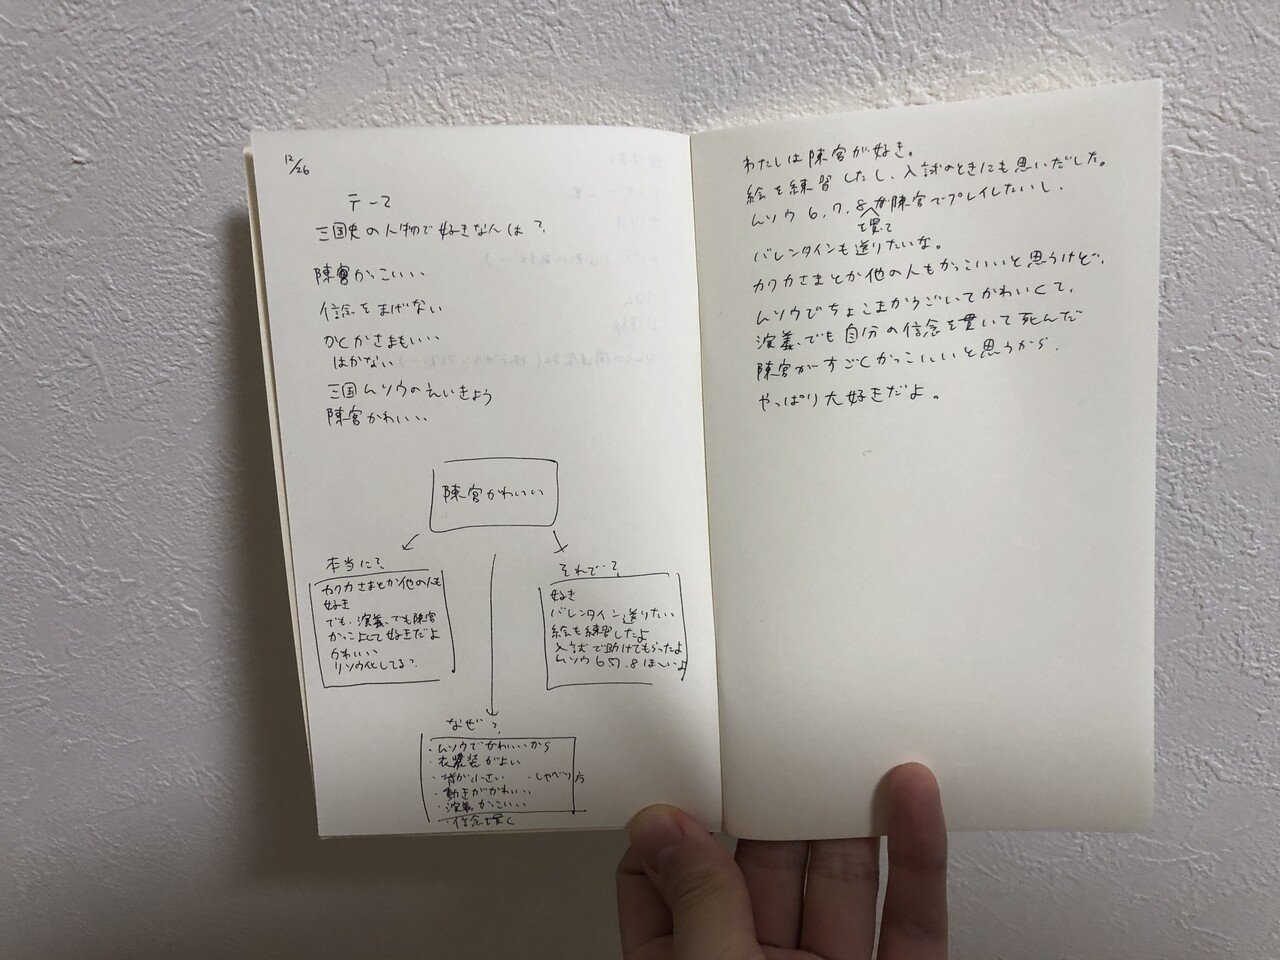 12/26
テーマ
三国史の人物で好きなんは?
陳宮かっこいい
信念をまげない
かくかさまもいい
はかない
三国ムソウのえいきょう
陳宮かわいい
陳宮かわいい
本当に?
カクカさまとか他の人も
好き
でも、演義でも陳宮
かっこよくて好きだよ
かわいい
リソウ化してる?
それで?
好き
バレンタイン送りたい
絵も練習したよ
入試で助けてもらったよ
ムソウ6,7,8ほしいよ
なぜ?
・ムソウでかわいいから
・衣装がよい
・背が小さい ・しゃべり方
・動きがかわいい
・演義かっこいい
・信念を貫く
わたしは陳宮が好き。
絵を練習したし、入試のときにも思いだした。
ムソウ6,7,8を買って陳宮でプレイしたいし、
バレンタインも送りたいな。
カクカさまとか他の人もかっこいいと思うけど、
ムソウでちょこまかうごいてかわいくて、
演義でも自分の信念を貫いて死んだ
陳宮がすごくかっこいいと思うから、
やっぱり大好きだよ。